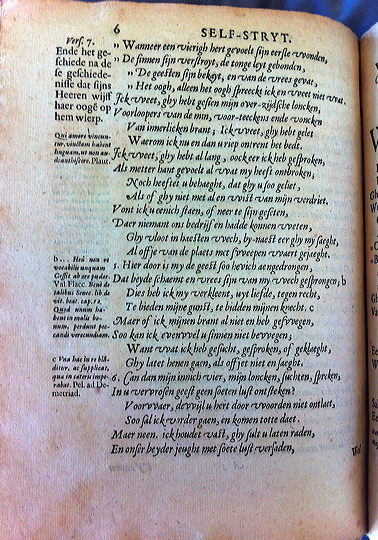 6 SELF-STRYT.
Vers. 7.
Ende het ge-
schiede na de
se geschiede-
nisse dat sijns
Heeren wijff
haer oogē op
hem wierp.
Qui amore vincun-
tur, vinctum habent
linguam, ut non au-
deant hiscere. Plaut.
b... Heu non re
vocabilis unquam
Cessit ab ore pudor.
Val Flacc. Bene de
talibus Senec. lib. de
vit. beat. cap. 12.
Quod unum ha-
bent in malis bo-
num, perdunt pec-
candi verecundiam.
c Una hæc in re blā-
ditur, ac supplicat,
qua in cateris impe-
rabat. Pel. ad De-
metriad.
„ Wanneer een vierigh hert gevoelt sijn eerste wonden,
„ De sinnen sijn verstroyt, de tonge leyt gebonden,
„ De geesten sijn bekayt, en van de vrees gevat,
„ Het oogh, alleen het oogh spreeckt ick en weet niet wat.
Ick weet, ghy hebt gesien mijn over-zijdsche loncken,
Voorloopers van de min, voor-teeckens ende voncken
Van innerlicken brant; Ick weet, ghy hebt gelet
Waerom ick nu en dan u riep ontrent het bedt.
Ick weet, ghy hebt al lang, oock eer ick heb gesproken,
Als metter hant gevoelt al wat my heeft ontbroken,
Noch heeftet u behaeght, dat ghy u soo geliet,
Als of ghy niet met al en wist van mijn verdriet.
Vont ick u eenich staen, of neer te sijn geseten,
Daer niemant ons bedrijf en hadde konnen weten,
Ghy vloot in haesten wech, by-naest eer ghy my saeght,
Al of je van de plaets met sweepen waert gejaeght.
5. Hier door is my de geest soo hevich aengedrongen,
Dat beyde schaemt en vrees sijn van my wech gesprongen; b
Dies heb ick my verkleent, uyt liefde, tegen recht,
Te bieden mijne gunst, te bidden mijnen knecht. c
Maer of ick mijnen brant al niet en heb geswegen,
Soo kan ick evenwel u sinnen niet bewegen;
Want wat ick heb gesicht, gesproken, of geklaeght,
Ghy latet henen gaen, als of jet niet en saeght.
6. Can dan mijn innich vier, mijn loncken, suchten, spreken,
In u vervrosen geest geen soeten lust ontsteken?
Voorwaer, dewijl u hert door woorden niet ontlaet,
Soo sal ick vorder gaen, en komen totte daet.
Maer neen. ick houdet vast, ghy sult u laten raden,
En onser beyder jeught met soete lust versaden,